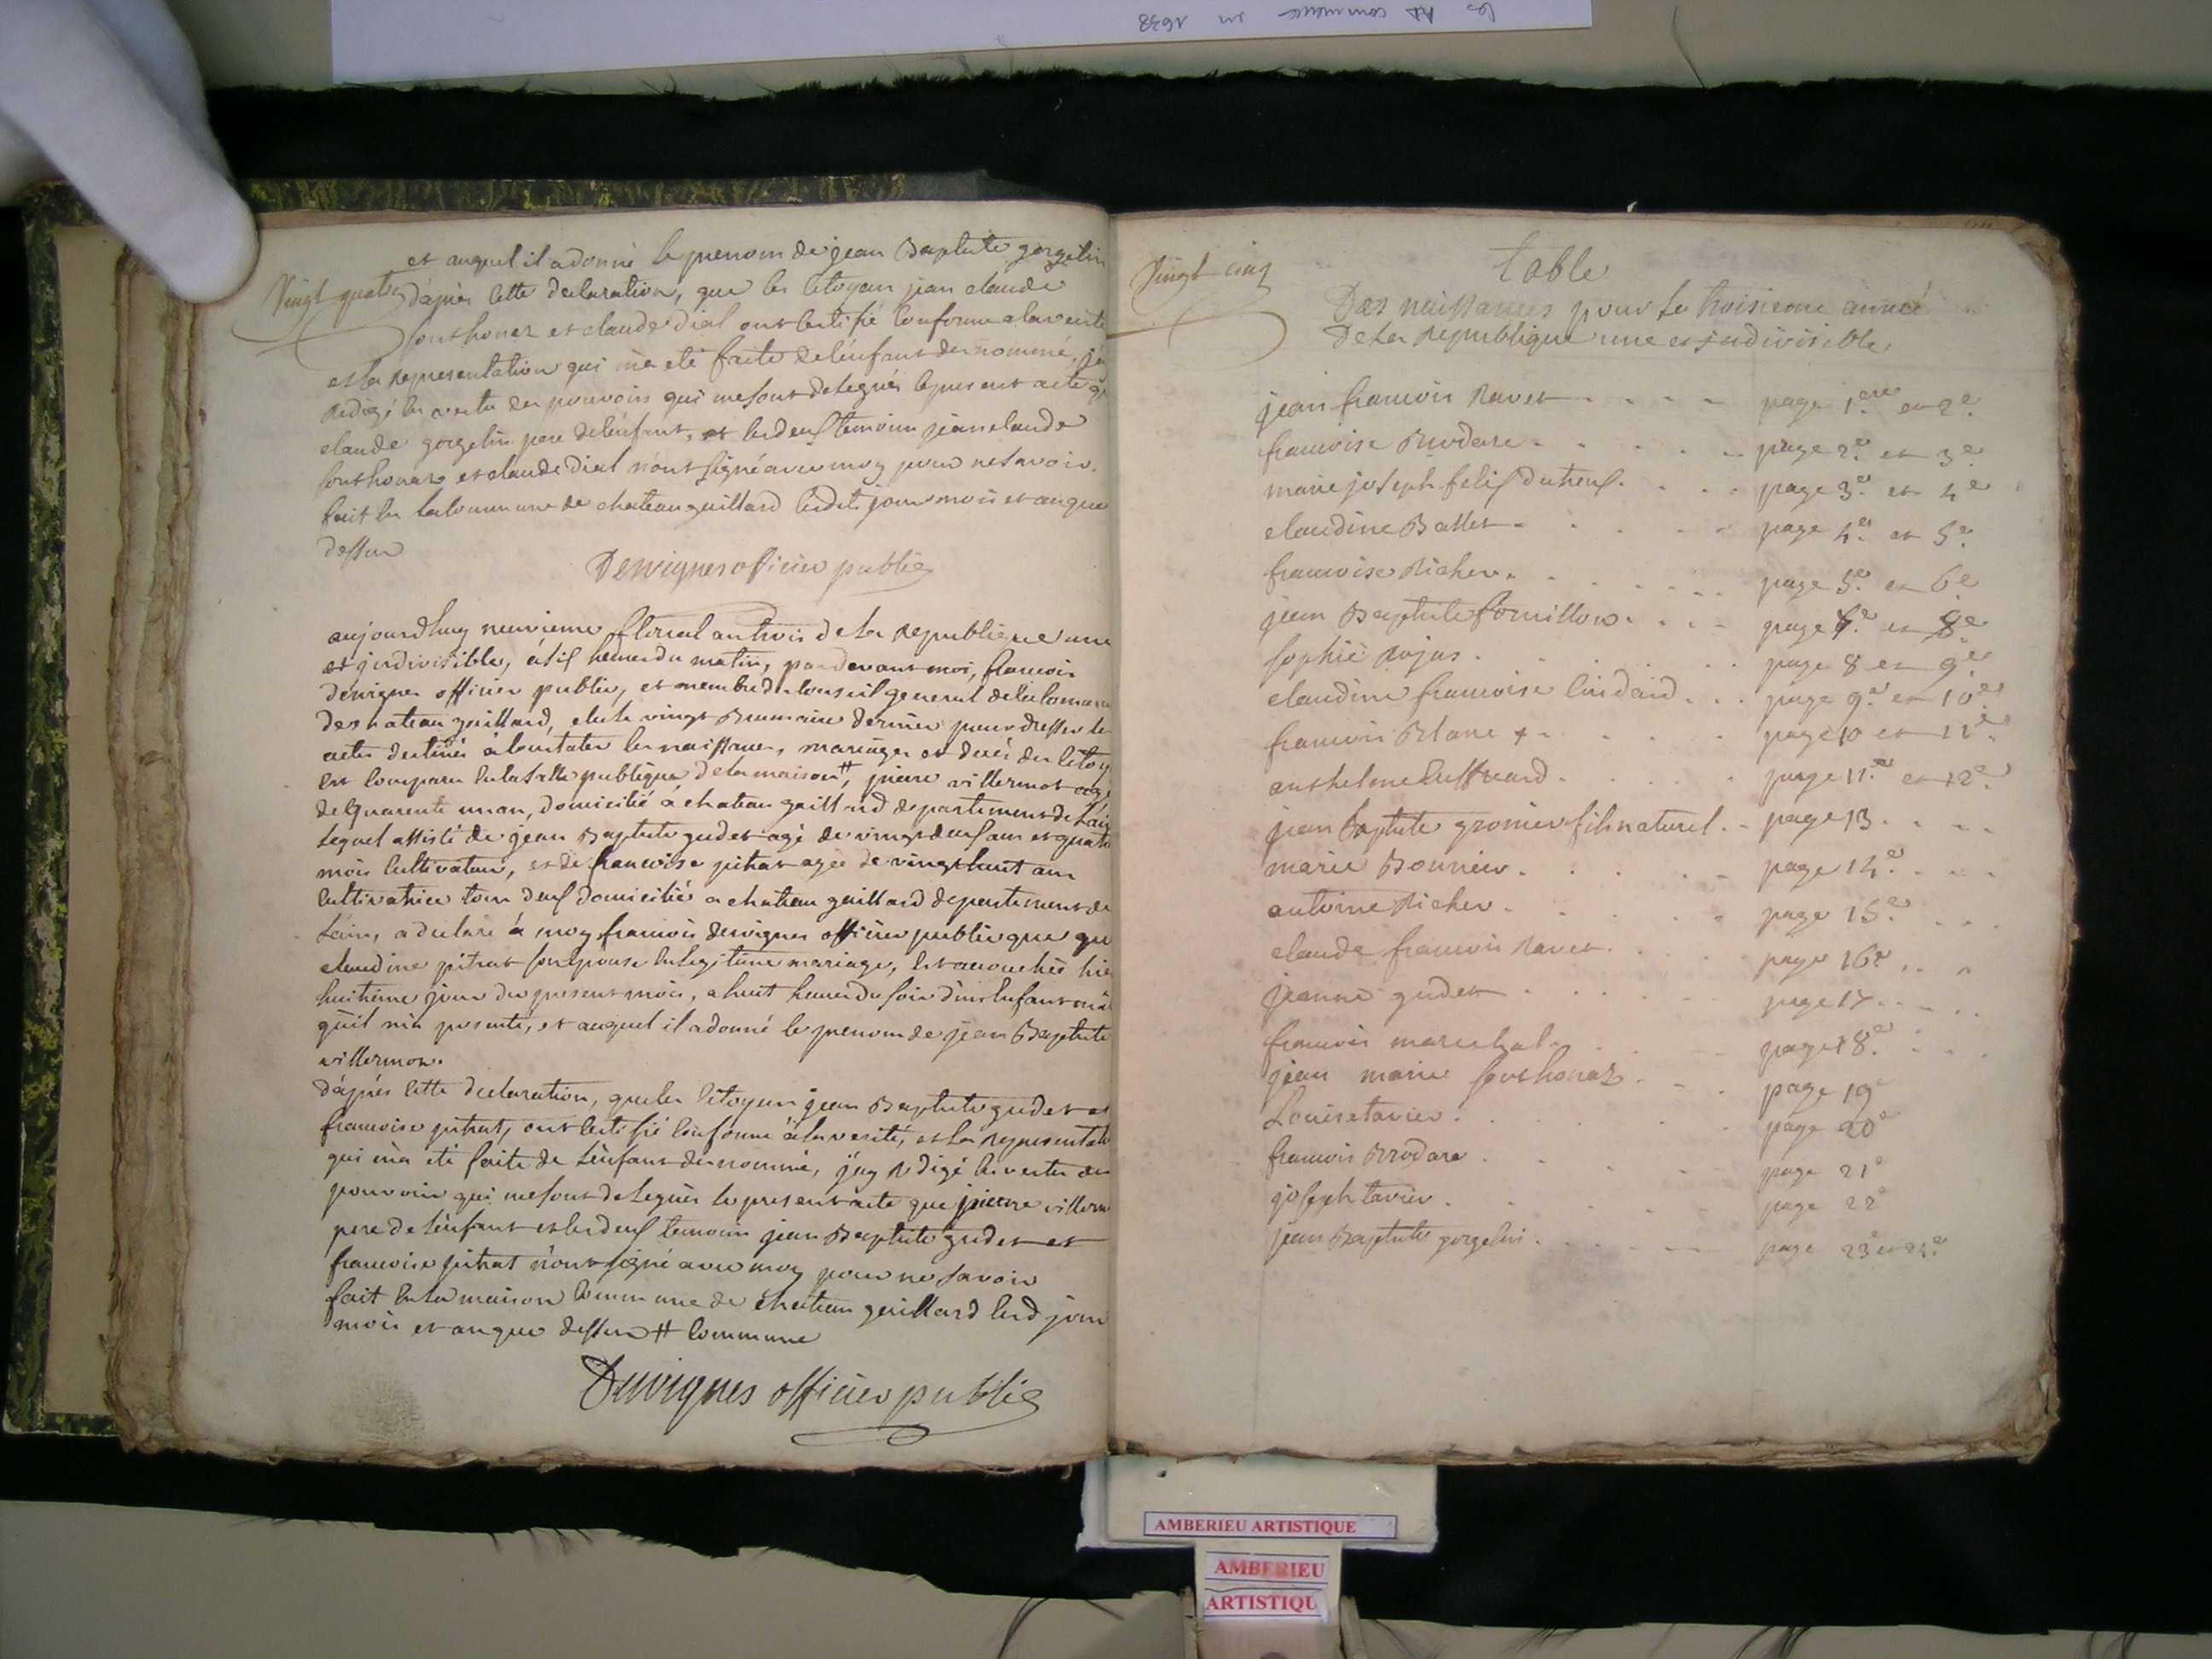 les AD commence en 1638
et auquel il a donné le prenom de jean Baptiste gorgelin
Vingt quatre
d'apres cette declaration, que les citoyens jean claude
fonthonax et claude Dial ont certifié conforme a la verité
et la representation qui m'a eté faite de l'enfant denommé, j'ai
redigé en vertu des pouvoirs qui me sont delegués le present acte que
claude gorgelin pere de l'enfant, et les deux temoins jean claude
fonthonax et claude Dial n'ont signé avec moy pour ne savoir.
fait en la commune de chateau gaillard lesdits jour mois et an que
dessus
Dervignes officier public
aujourdhuy neuvieme floreal an trois de la republique une
et indivisible, à six heures du matin, par devant moi, francois
dervignes officier public, et membre du conseil general de la commune
de chateau gaillard, elu le vingt Brumaire dernier pour dresser les
actes destinés à constater les naissances, mariages et decès des citoy
est comparu en la salle publique de la maison #, pierre villermot agé
de quarente un an, domicilié à chateau gaillard departement de l'ain
lequel assisté de jean Baptiste gudet agé de vingt deux ans et quatre
mois cultivateur, et de francoise pitrat agée de vingt huit ans
cultivatrice tous deux domicilié a chateau gaillard departement de
l'ain, a declaré à moy francois dervignes officier public que que
claudine pitrat son epouse en legitime mariage, est accouchée hier
huitieme jour du present mois, a huit heures du soir d'un enfant mâl
qu'il m'a presenté, et auquel il a donné le prenom de jean Baptiste
villermoz.
d'après cette declaration, que les citoyens jean Baptiste gudet et
francoise pitrat, ont certifié conforme à la verité, et la representati
qui m'a eté faite de l'enfant denommé, j'ay redigé en vertu des
pouvoirs qui me sont delegués le present acte que pierre villerm
pere de l'enfant et les deux temoins jean Baptiste gudet et
francoise pitrat n'ont signé avec moy pour ne savoir
fait en la maison commune de chateau gaillard lesd jour
mois et an que dessus # commune
Dervignes officier public
Vingt cinq
table
Des naissances pour la troisieme année
De la republique une et indivisible,
jean francois Ravet page 1ere et 2e
francoise Brodare page 2e et 3e
marie joseph felix dutreux page 3e et 4e
claudine Ballet page 4e et 5e
francoise Richer page 5e et 6e
jean Baptiste fornillon page 7e et 8e
sophie Rojas page 8 et 9e
claudine francoise lindard page 9e et 10e
francois Blanc + page 10 et 11e
anthelme cuffreard page 11e et 12e
jean baptiste gronier fils naturel page 13
marie Bonnier page 14e
antoine Richer page 15e
claude francois Ravet page 16e
jeanne gudet page 17
francois marechal page 18e
jean marie fonthonax page 19e
Louise tavier page 20e
francois Brodare page 21e
joseph tavier page 22e
jean Baptiste gorgelin page 23e et 24e
AMBERIEU ARTISTIQUE
AMBERIEU
ARTISTIQU